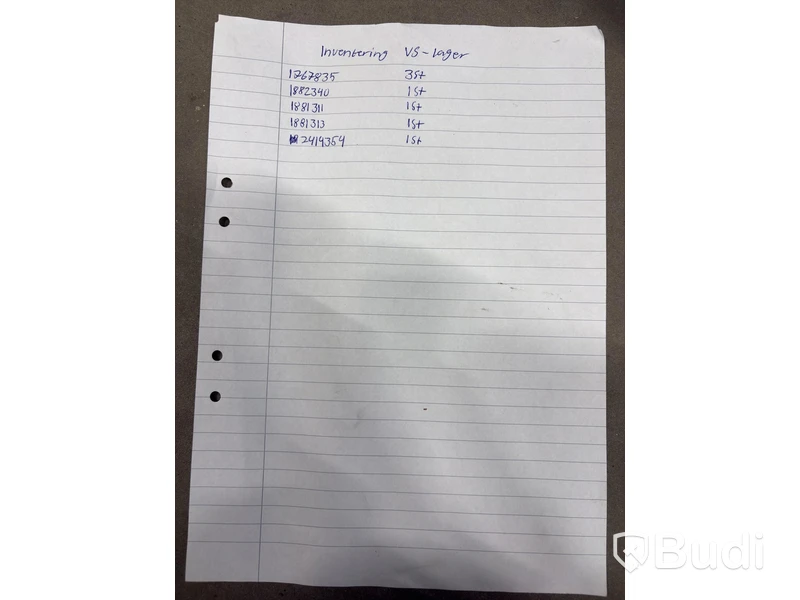 Inventering VS-lager
1767835 3st
1882340 1st
1881311 1st
1881313 1st
2414354 1st
Budi